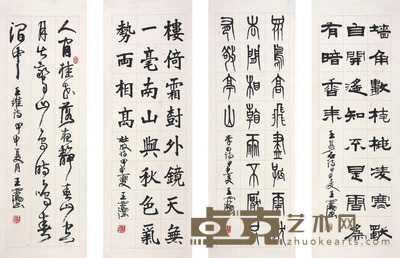 墙角數枝梅凌寒獨
自開遥知不是雪為
有暗香来 王安石詩甲申夏王
眾鳥高飛盡孤雲獨
去閒相看兩不厭只
有敬亭山 李白詩甲申夏王
樓倚霜樹外鏡天無
一毫南山與秋色氣
勢兩相高 杜牧詩甲申夏王
人閒桂花落夜静春山空
月出驚山鳥時鳴春
澗中 王維詩甲申夏月王